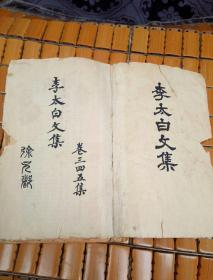 李太白文集
李太白文集
卷三四五集